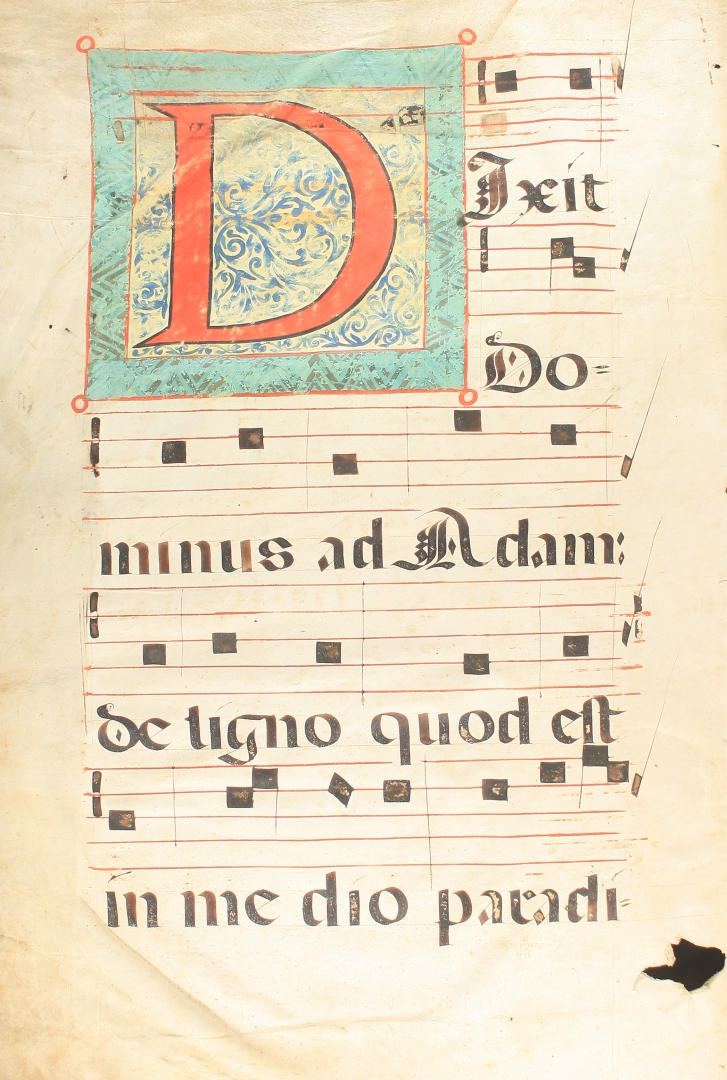 DIxit
Do=
minus ad Adam:
de ligno quod est
in me dio paradi=